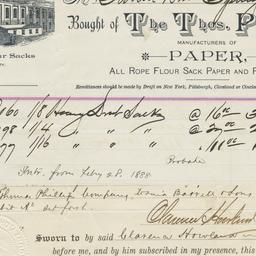 Bought of The Thos. P
MANUFACTURERS OF
ur Sacks
PAPER,
ALL ROPE FLOUR SACK PAPER and F
Remittances should be made by Draft on New York, Pittsburgh, Cleveland or Cincin
060 1/8 Heavy Dust Sacks @ 16
98 1/4 " " " @
77 1/16 " " " "
Probate
Intr. from Feby 28. 1888
Thomas Phillips Company,
bit No set forth.
Clarence Howland
SWORN to by said Clarence Howland
before me, and by him subscribed in my presence, this